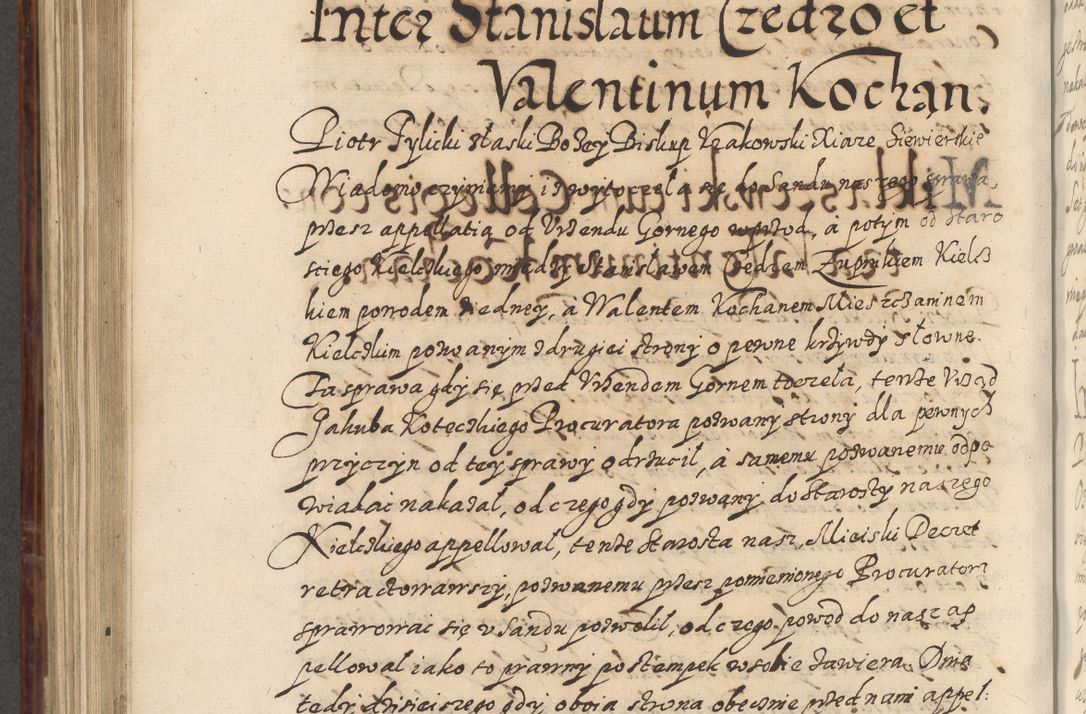 Inter Stanislaum Czedro et
Valentinum Kochan.
Piotr Tylicki z łaski Bozey Biskup Krakowski Xiąze Siewierskie
Wiadomo czyniemy iz wytoczeła się do Sandu naszego sprawa
przesz appellatią od Vrzendu Gornego wprzod, a potym od Staro
sciego Kielczkiego między Stanisławem Czedrem Zupnikiem Kielcz
kiem powodem z iedney, a Walentem Kochanem Mieszczaninem
Kielczkim pozwanym z drugiei strony o pewne krzywdy słowne.
Ta sprawa gdy się przed Vrzendem Gornem toczeła, tenze Vrząd
Jakuba Koteczkiego Procuratora pozwany strony dla pewnych
przyczyn od tey sprawy odrzucił, a samemu pozwanemu odpo
wiadac nakazał, od czego gdy pozwany do Starosty naszego
Kielczkiego appellował, tenze Starosta nasz, Mieiski Decret
retractowawszy, pozwanemu przesz pomienionego Procuratora
sprawowac się v Sandu pozwolił, od czego powod do nasz ap
pellował iako to prawny postempek w sobie zawiera. Dnia
tedy dzisieiszego gdy oboia strona obecznie przed nami appel: